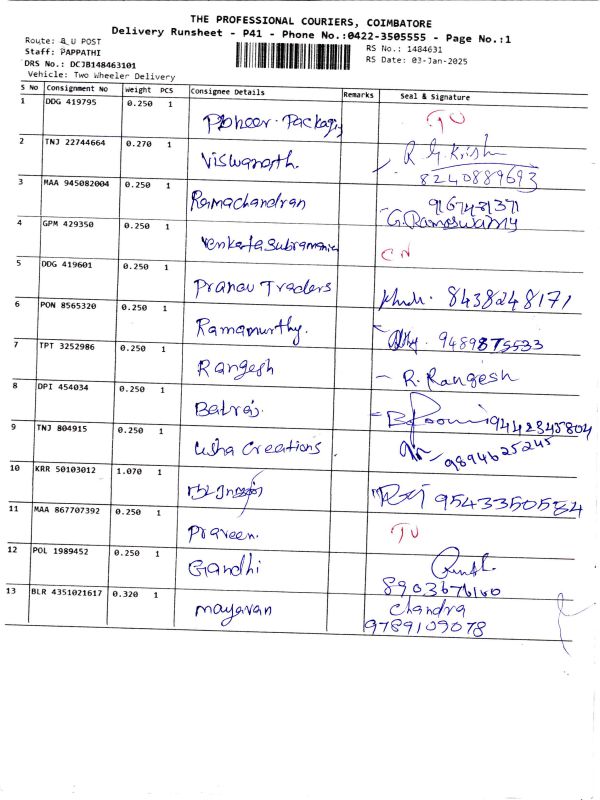 THE PROFESSIONAL COURIERS, COIMBATORE
Delivery Runsheet - P41 - Phone No.:0422-3505555 - Page No.:1
Route: B U POST
RS No.: 1484631
Staff: PAPPATHI
RS Date: 03-Jan-2025
DRS No.: DCJB148463101
Vehicle: Two Wheeler Delivery
S No Consignment NO Weight PCS Consignee Details Remarks Seal & Signature
1 DDG 419795 0.250 1 Pioneer. Packagig
2 TNJ 22744664 0.270 1 Viswanath. R G.Krish
8240889693
3 MAA 945082004 0.250 1 Ramachandran
G.Ramaswamy
4 GPM 429350 0.250 1 Venkatasubramanian
5 DDG 419601 0.250 1 Pranav Traders 8438248171
6 PON 8565320 0.250 1 Ramamurthy. 9489875533
7 TPT 3252986 0.250 1 Rangesh - R. Rangesh
8 DPI 454034 0.250 1 9442345804
9 TNJ 804915 0.250 1 Usha Creations. 9894625245
10 KRR 50103012 1.070 1 9543350534
11 MAA 867707392 0.250 1 Praveen.
12 POL 1989452 0.250 1 Gandhi
13 BLR 4351021617 0.320 1 mayavan Chandra
9789109078